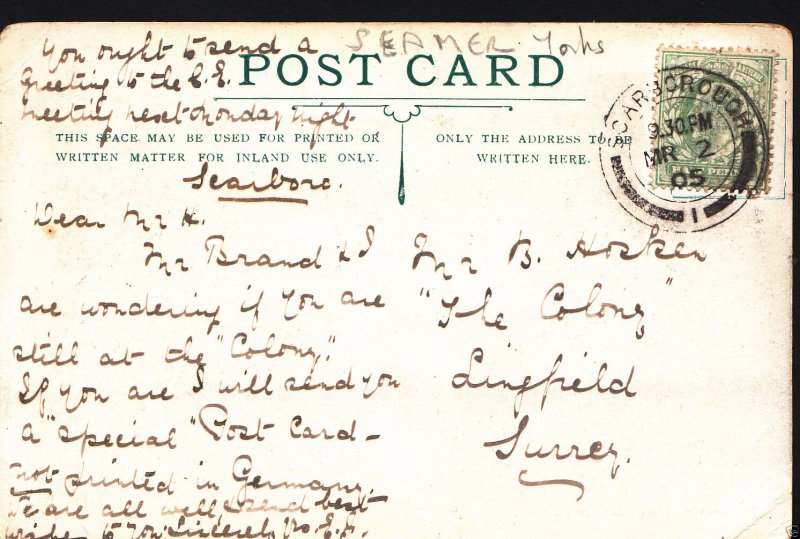 You ought to send a
Greeting to the C.E.
meeting next Monday night
SEAMER Yorks
POST CARD
THIS SPACE MAY BE USED FOR PRINTED OR
WRITTEN MATTER FOR INLAND USE ONLY.
ONLY THE ADDRESS TO BE
WRITTEN HERE.
SCARBOROUGH
9.30 PM
MR 2
05
1
Scarboro.
Dear Mr H.
Mr Brand & I
are wondering if you are
still at the "Colony".
If you are I will send you
a "special" Post Card –
not printed in Germany.
We are all well & send best
wishes to you. Sincerely
Mr B. Hosken
"The Colony"
Lingfield
Surrey.